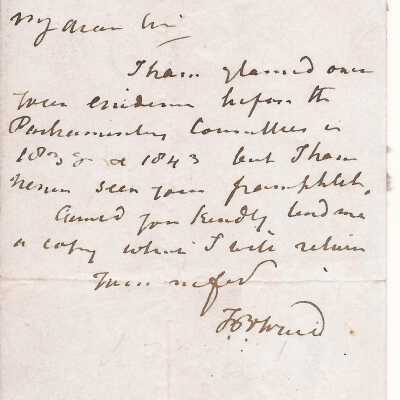 My dear Sir
I have glanced over
your evidence before the
Parliamentary Committees in
1838 & 1843 but I have
never seen your pamphlet.
Could you kindly lend me
a copy which I will return
Yours